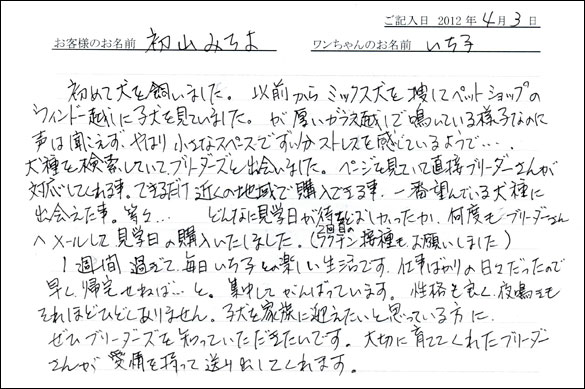 ご記入日 2012年4月3日
お客様のお名前 初山みちよ ワンちゃんのお名前 いち子
初めて犬を飼いました。以前からミックス犬を捜してペットショップの
ウィンドー越しに子犬を見ていました。が厚いガラス越しで鳴いている様子なのに
声は聞こえず、やはり小さなスペースでずい分ストレスを感じているようで・・・.
犬種を検索していてブリーダーズと出会いました。ページを見ていて直接ブリーダーさんが
対応してくれる事、できるだけ近くの地域で購入できる事、一番望んでいる犬種に
出会えた事。等々・・ どんなに見学日が待ち遠しかったか、何度もブリーダーさん
へメールして見学日の購入いたしました。(2回目のワクチン接種もお願いしました)
1週間過ぎて、毎日いち子との楽しい生活です。仕事ばかりの日々だったので
早く帰宅せねば・・・と。集中してがんばっています。性格も良く、夜鳴きも
それほどひどくありません。子犬を家族に迎えたいと思っている方に
ぜひブリーダーズを知っていただきたいです。大切に育ててくれたブリーダー
さんが愛情を持って送り出してくれます。